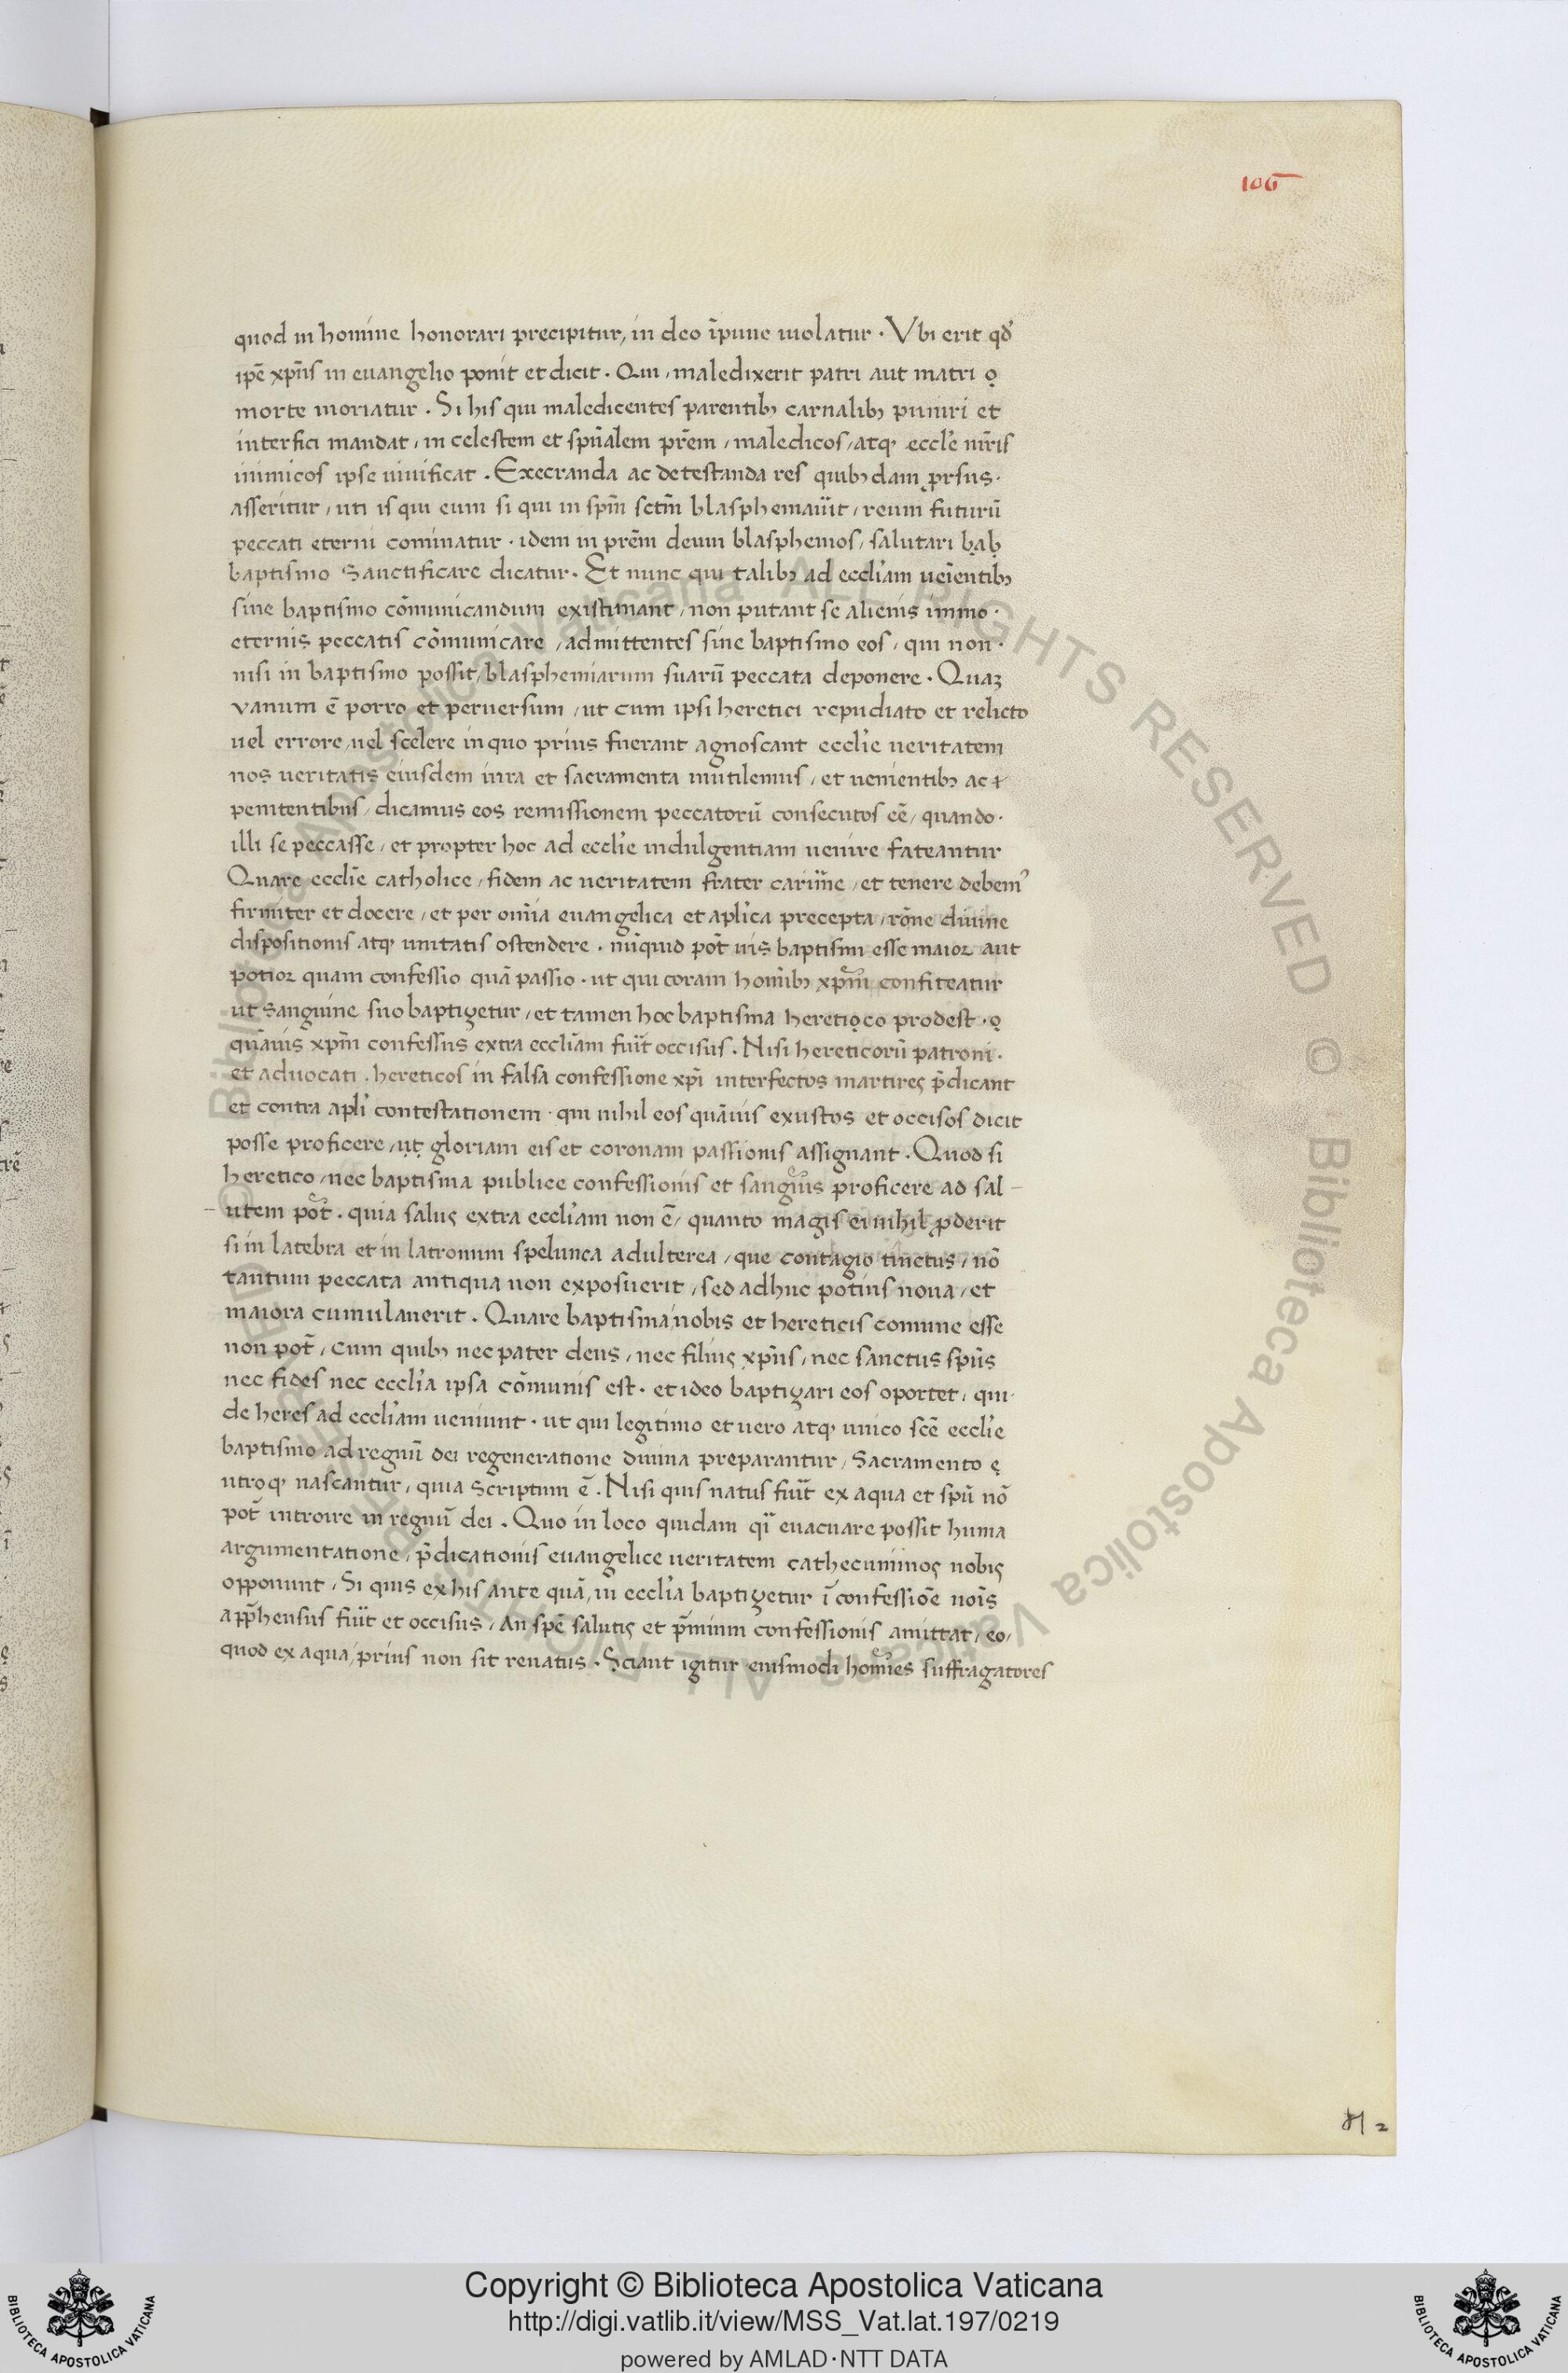 106
quod in homine honorari precipitur, in deo īpune uiolatur · Vbi erit qd̓
ipē xp̄us in euangelio ponit et dicit · Qui, maledixerit patri aut matri
morte moriatur · Si his qui maledicentes parentibꝫ carnalibꝫ puniri et
interfici mandat, in celestem et spūalem pr̄em, maledicos, atqꝫ eccl̓e mr̄is
inimicos ipse uiuificat · Execranda ac detestanda res quibꝫdam prsus ·
asseritur, uti is qui eum si qui in spm̄ sctm̄ blasphemau̓it, reum futurū
peccati eterni cominatur · idem in prēm deum blasphemos, salutari bab
baptismo Sanctificare dicatur · Et nunc qui talibꝫ ad eccl̓iam ueīentibꝫ
sine baptismo cōmunicandum existimant, non putant se alienis immo ·
eternis peccatis cōmunicare, admittentes sine baptismo eos, qui non ·
nisi in baptismo possit, blasphemiarum suarū peccata deponere · Quaꝫ
vanum ē porro et peruersum, ut cum ipsi heretici repudiato et relicto
uel errore, uel scelere in quo prius fuerant agnoscant eccl̓ie ueritatem
nos ueritatis eiusdem iura et sacramenta mutilemus, et uenientibꝫ ac
penitentibus, dicamus eos remissionem peccatorū consecutos eē, quando ·
illi se peccasse, et propter hoc ad eccl̓ie indulgentiam uenire fateantur
Quare eccl̄ie catholice, fidem ac ueritatem frater carim̄e, et tenere debem᾽
firmiter et docere, et per omīa euangelica et apl̓ica precepta, rōne diuine
dispositionis atqꝫ unitatis ostendere · nūquid pot̄ uis baptismi esse maior aut
potior quam confessio quā passio · ut qui coram homībꝫ xpm̄ confiteatur
ut Sanguine suo baptigetur, et tamen hoc baptisma heretico prodest ·
quāuis xpm̄ confessus extra eccliām fuīt occisus · Nisi hereticorū patroni ·
et aduocati · hereticos in falsa confessione xpī interfectos martires p̄dicant
et contra apl̓i contestationem · qui nihil eos quāuis exustos et occisos dicit
posse proficere, ut gloriam eis et coronam passionis assignant · Quod si
heretico, nec baptisma publice confessionis et sanguīs proficere ad sal-
-utem pot̄ · quia salus extra eccl̓iam non ē, quanto magis ei nihil ꝓderit
si in latebra et in latronum spelunca adulterea, que contagio tinctus, nō
tantum peccata antiqua non exposuerit, sed adhuc potius noua, et
maiora cumulauerit · Quare baptisma nobis et hereticis comune esse
non pot̄, cum quibꝫ nec pater deus, nec filius xp̄us, nec sanctus spūs
nec fides nec eccl̓ia ipsa cōmunis est · et ideo baptigari eos oportet, qui ·
de heres ad eccl̓iam ueniunt · ut qui legitimo et uero atqꝫ unico scē eccl̓ie
baptismo ad regnū dei regeneratione diuina preparantur, Sacramento
utroqꝫ nascantur, quia Scriptum ē · Nisi quis natus fuīt ex aqua et spū nō
pot̄ introire in regnū dei · Quo in loco quidam qī euacuare possit huma
argumentatione, p̄dicationis euangelice ueritatem cathecuminos nobis
opponunt, Si quis ex his ante quā, in eccl̓ia baptigetur ī confessiōe noīs
app̄hensus fuīt et occisus, An spē salutis et p̄mium confessionis amittat, eo,
quod ex aqua, prius non sit renatus · Sciant igitur eiusmodi homīes suffragatores
Copyright © Biblioteca Apostolica Vaticana
http://digi.vatlib.it/view/MSS_Vat.lat.197/0219
powered by AMLAD·NTT DATA